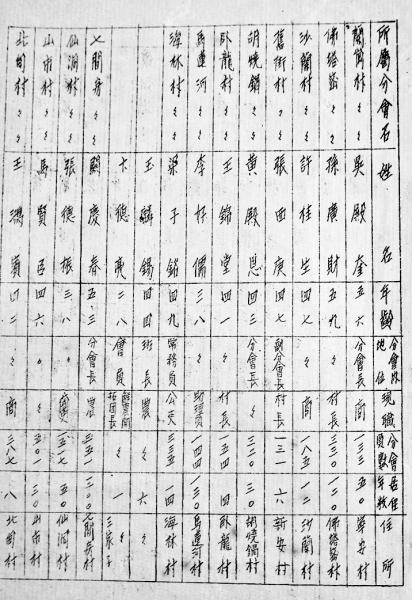 所屬分會名 姓名 年齡 分會地位 現職 分會員數 居住年數 住所
蘭崗村 吳殿奎 五六 分會長 商 一三三 二〇
佛塔密 孫廣財 五九 〃 村長 一〇〇 二〇 佛塔密村
沙蘭村 〃 許桂生 四七 〃 商 一八五 一二 沙蘭村
舊街村 〃 張西庚 四七 副分會長 村長 一三一 一六 新安村
胡燒鍋 〃 黃殿恩 四三 分會長 〃 三二〇 三〇 胡燒鍋村
臥龍村 〃 王錦堂 四一 〃 村長 一五四 四四 臥龍村
馬蓮河 〃 李好儒 三八 〃 助理員 一四〇 三〇 馬蓮河村
海林村 〃 梁子銘 四九 常務員 公吏 三三五 一四 海林村
〃 〃 王麟錫 四四 班長 農 〃 六 〃
〃 〃 卞德亮 二八 會員 〃 一 三家子
七間房 〃 關慶春 五三 分會長 農 三五一 二〇〇 七間房村
仙洞村 〃 張德振 三八 〃 五一七 五〇 仙洞村
山市村 〃 馬賢臣 四六 〃 〃 五〇一 三〇 山市村
北甸村 〃 王鴻賓 四二 〃 商 三八七 八 北甸村